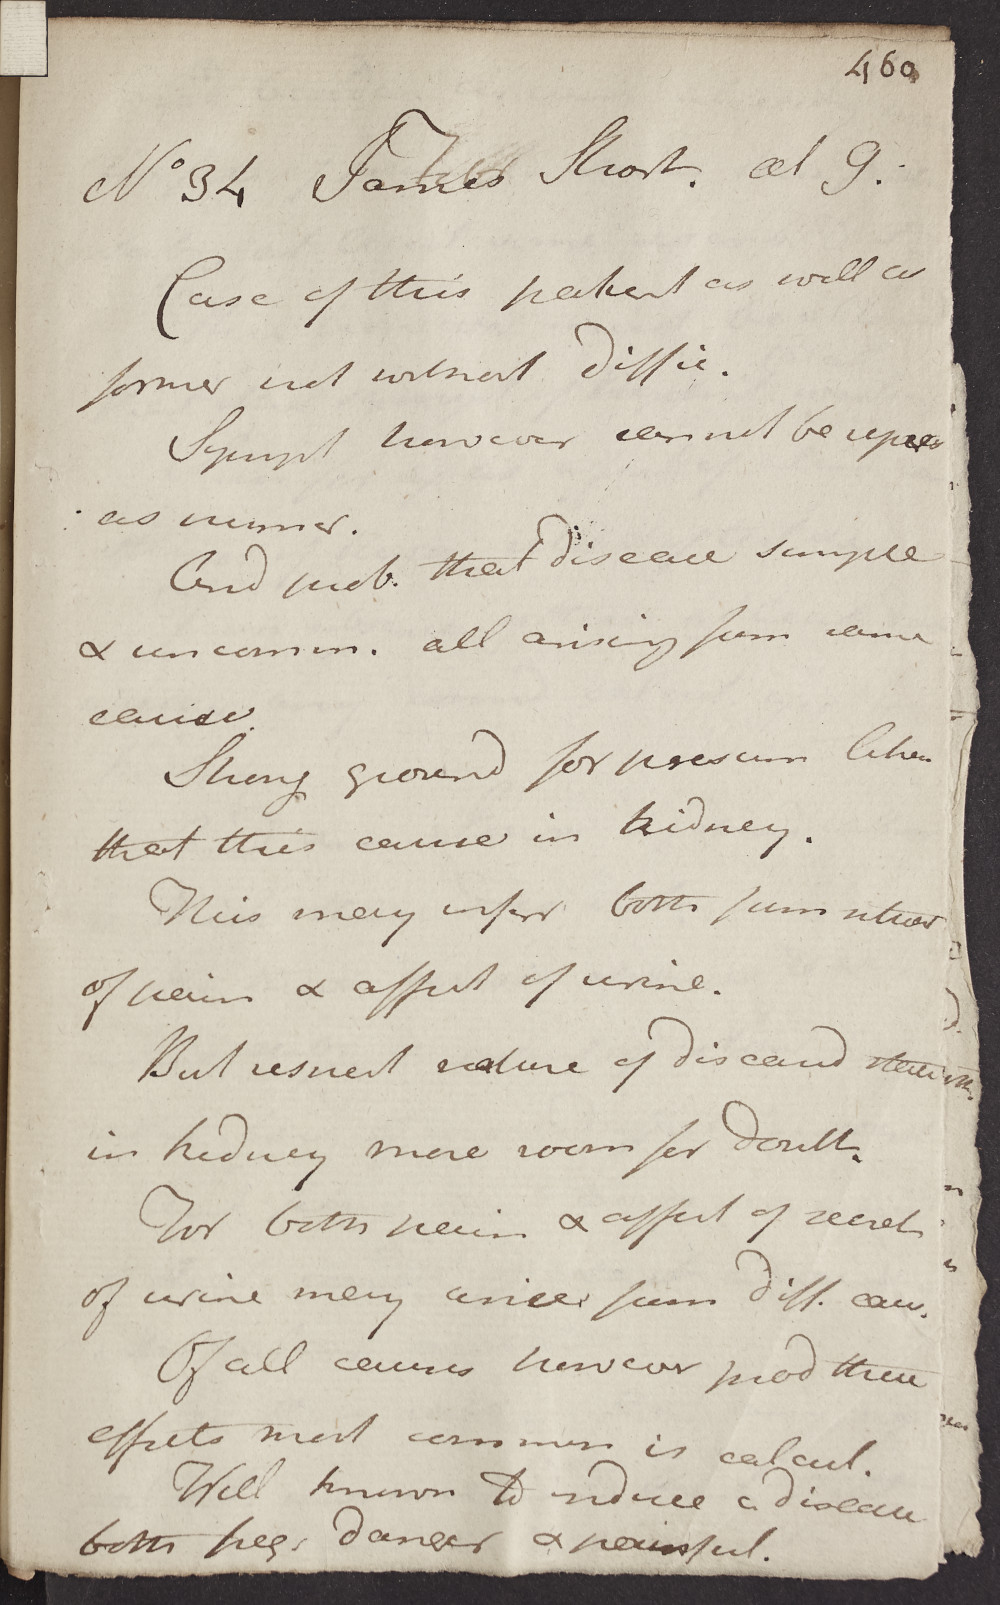 460
No 34 James Short. aet 9.
Case of this patient as well as
former not without Diffic.
Sympt however cannot be repres
as numer.
And prob. that disease simple
& uncomm. all arising from same
cause.
Strong ground for presum
that this cause in kidney.
This may infer both from
of pain & affect of urine.
But respect nature of disease
in kidney more room for doubt.
For both pain & affect of secret
of urine may arise from diff. caus.
Of all causes however prod these
effects most common is calcul.
Well known to induce a disease
both freq. danger & painful.